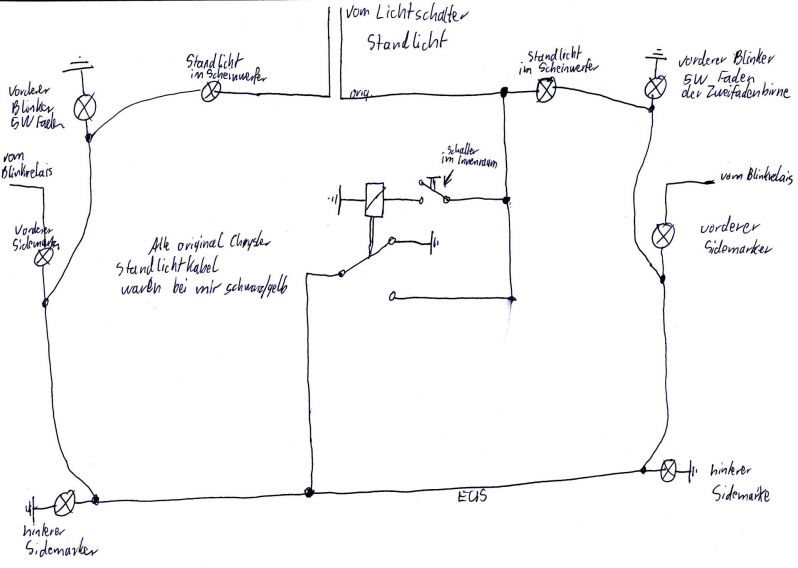 vom Lichtschalter
Standlicht
Standlicht
im Scheinwerfer
Standlicht
im Scheinwerfer
vorderer Blinker
5W Faden
der Zweifadenbirne
vorderer
Blinker
5W Faden
vom
Blinkrelais
Schalter
im Innenraum
vom Blinkrelais
vorderer
Sidemarker
vorderer
Sidemarker
Alle original Chrysler
Standlichtkabel
waren bei mir schwarz/gelb
hinterer
Sidemarke
hinterer
Sidemarker